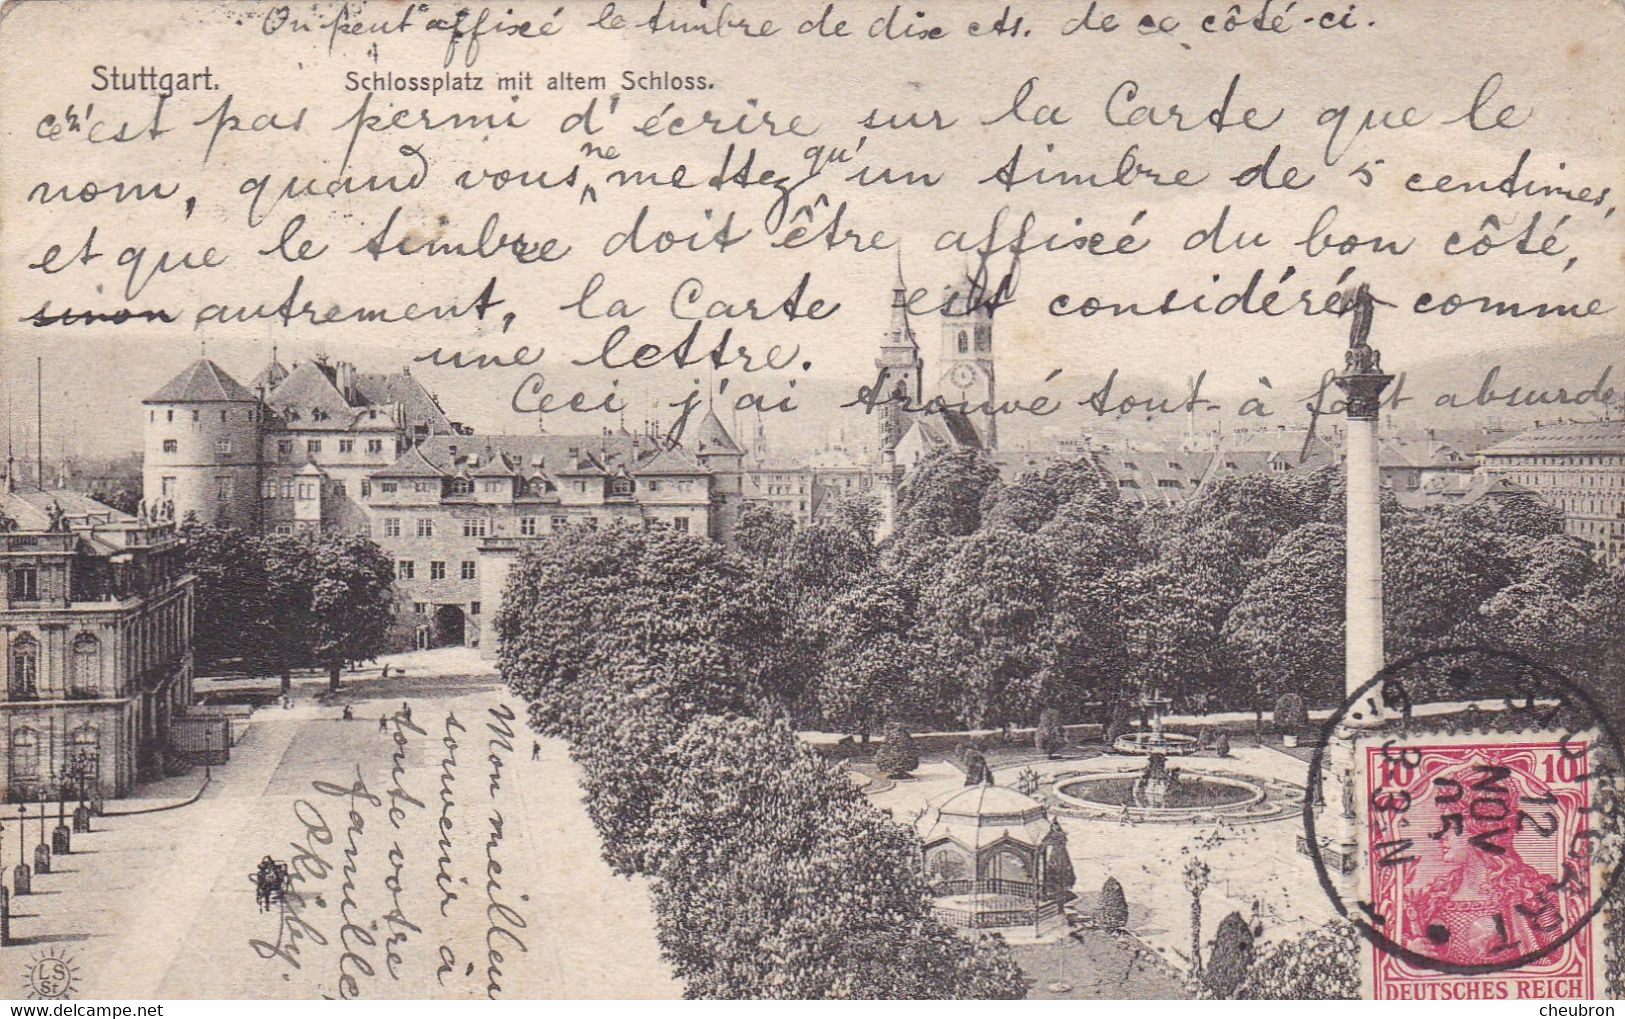 On peut affixé le timbre de dix cts. de ce côté-ci.
Stuttgart. Schlossplatz mit altem Schloss.
n'est pas permi d'écrire sur la Carte que le
nom, quand vous ne mettez qu'un timbre de 5 centimes,
et que le timbre doit être affixé du bon côté,
sinon autrement, la Carte est considérée comme
une lettre.
Ceci j'ai trouvé tout-à fait absurde
Mon meilleu
souvenir à
toute votre
famille
STUTTGART
12
NOV
05
8-9N
10 10
DEUTSCHES REICH
L S
St
cheubron.com